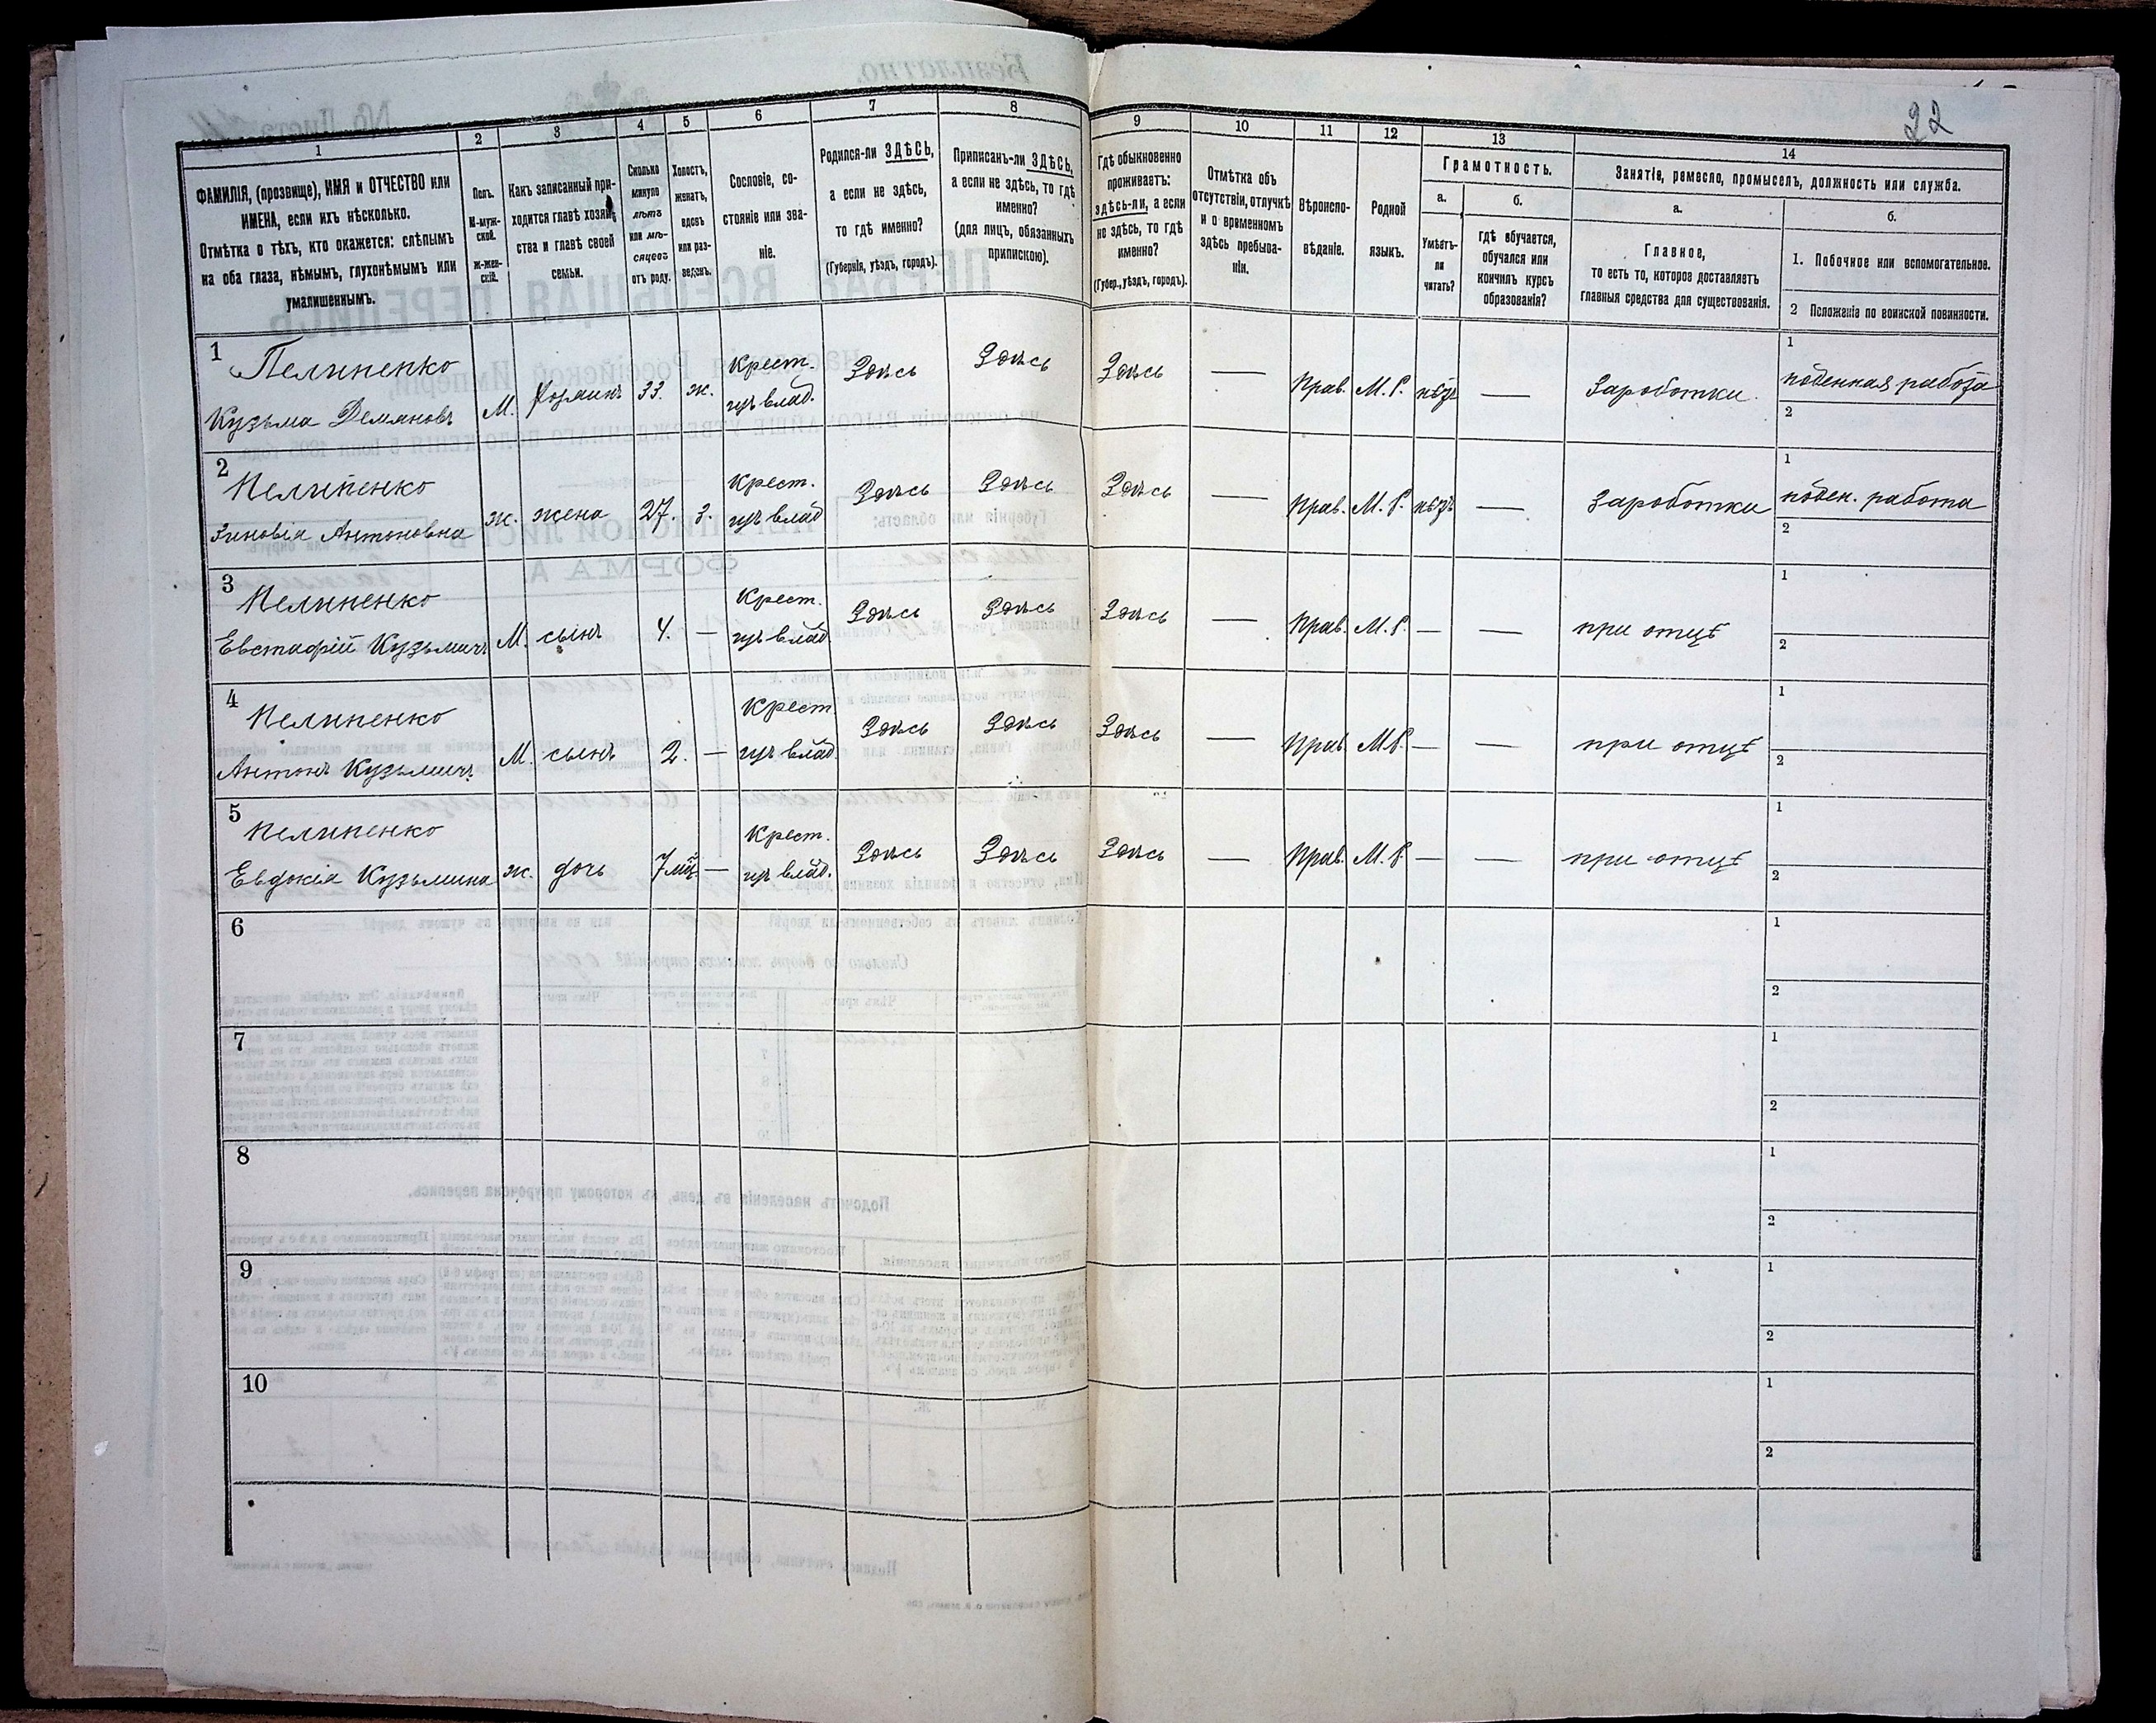 22
1
2
3
4
5
6
7
8
9
10
11
12
13
14
ФАМИЛІЯ, (прозвище), ИМЯ и ОТЧЕСТВО или
ИМЕНА, если ихъ нѣсколько.
Отмѣтка о тѣхъ, кто окажется: слѣпымъ
на оба глаза, нѣмымъ, глухонѣмымъ или
умалишеннымъ.
Полъ.
М-муж-
ской.
Ж-жен-
скій.
Какъ записанный при-
ходится главѣ хозяй-
ства и главѣ своей
семьи.
Сколько
минуло
лѣтъ
или мѣ-
сяцевъ
отъ роду.
Холостъ,
женатъ,
вдовъ
или раз-
веденъ.
Сословіе, со-
стояніе или зва-
ніе.
Родился-ли ЗДѢСЬ,
а если не здѣсь,
то гдѣ именно?
(Губернія, уѣздъ, городъ).
Приписанъ-ли ЗДѢСЬ,
а если не здѣсь, то гдѣ
именно?
(для лицъ, обязанныхъ
припискою).
Гдѣ обыкновенно
проживаетъ:
здѣсь-ли, а если
не здѣсь, то гдѣ
именно?
(Губер., уѣздъ, городъ).
Отмѣтка объ
отсутствіи, отлучкѣ
и о временномъ
здѣсь пребыва-
ніи.
Вѣроиспо-
вѣданіе.
Родной
языкъ.
Грамотность.
а.
Умѣетъ-
ли
читать?
б.
гдѣ обучается,
обучался или
кончилъ курсъ
образованія?
Занятіе, ремесло, промыселъ, должность или служба.
а.
Главное,
то есть то, которое доставляетъ
главныя средства для существованія.
б.
1. Побочное или вспомогательное.
2 Положеніе по воинской повинности.
1 Пелипенко
Кузьма Демяновъ М. хозяинъ 33. ж. Крест. изъ влад. Здѣсь Здѣсь Здѣсь — Прав. М. Р. нѣтъ — Заработки. 1 поденная работа
2
2 Пелипенко
Зиновія Антоновна ж. жена 27. з. Крест. изъ влад Здѣсь Здѣсь Здѣсь — Прав. М. Р. нѣтъ — Заработки 1 поден. работа
2
3 Пелипенко
Евстафій Кузьмичъ М. сынъ 4. — Крест. изъ влад. Здѣсь Здѣсь Здѣсь — Прав. М. Р. — — при отцѣ 1
2
4 Пелипенко
Антонъ Кузьмичъ М. сынъ 2. — Крест. изъ влад. Здѣсь Здѣсь Здѣсь — Прав. М Р. — — при отцѣ 1
2
5 Пелипенко
Евдокія Кузьмина ж. дочь 7 мѣ — Крест. изъ влад. Здѣсь Здѣсь Здѣсь — Прав. М. Р. — — при отцѣ 1
2
6 1
2
7 1
2
8 1
2
9 1
2
10 1
2